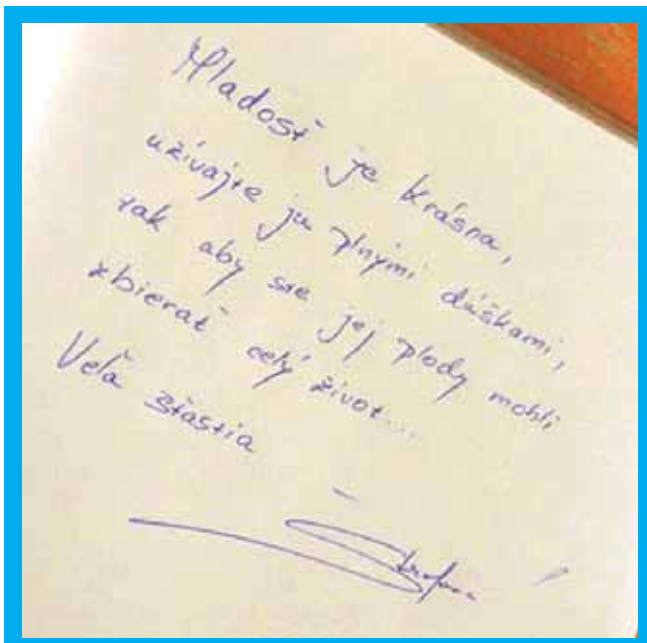 Mladosť je krásna,
užívajte ju plnými dúškami,
tak aby ste jej plody mohli
zbierať celý život...
Veľa šťastia